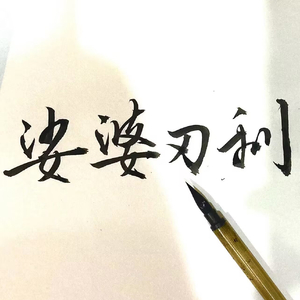 娑婆刃利